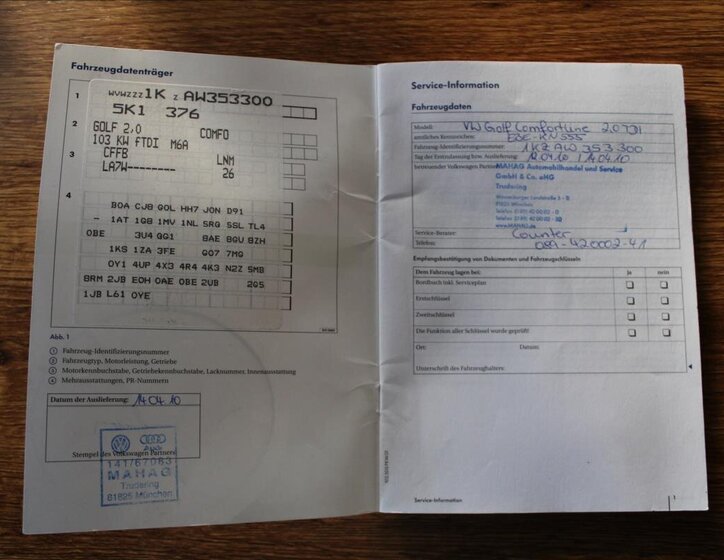 Fahrzeugdatenträger
1 WVWZZZ1K Z AW353300
5K1 376
2 GOLF 2.0 COMFO
103 KW fTDI M6A
3 CFFB LNM
LA7W---------- 26
4
BOA CJ8 QOL HH7 JON D91
- 1AT 1G8 1MV 1NL SRG SSL TL4
OBE 3U4 GG1 BAE BGU BZH
1KS 1ZA 3FE GO7 7MG
OY1 4UP 4X3 4R4 4K3 N2Z 5MB
8RM 2JB EOH OAE OBE 2UB 2G5
1JB L61 OYE
Abb. 1
1 Fahrzeug-Identifizierungsnummer
2 Fahrzeugtyp, Motorleistung, Getriebe
3 Motorkennbuchstabe, Getriebekennbuchstabe, Lacknummer, Innenausstattung
4 Mehrausstattungen, PR-Nummern
Datum der Auslieferung: 14.04.10
Audi
Stempel des Volkswagen Partners
141/67083
MAHAG
Trudering
81825 München
Service-Information
Fahrzeugdaten
Modell: VW Golf Comfortline 2.0 TDI
amtliches Kennzeichen: EBE-KN555
Fahrzeug-Identifizierungsnummer: 1KZ AW 353 300
Tag der Erstzulassung bzw. Auslieferung: 12.04.10 / 14.04.10
betreuender Volkswagen Partner: MAHAG Automobilhandel und Service
GmbH & Co. oHG
Trudering
Wasserburger Landstraße
München
www.MAHAG.de
Service-Berater: Counter
Telefon: 089-420002-41
Empfangsbestätigung von Dokumenten und Fahrzeugschlüsseln
Dem Fahrzeug lagen bei: ja nein
Bordbuch inkl. Serviceplan
Erstschlüssel
Zweitschlüssel
Die Funktion aller Schlüssel wurde geprüft!
Ort: Datum:
Unterschrift des Fahrzeughalters:
Service-Information 1